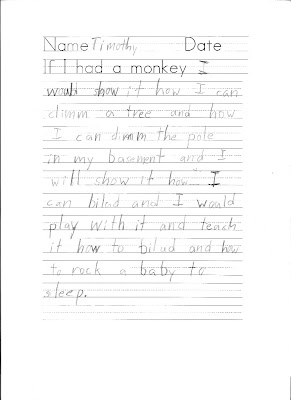 Name Timothy Date
If I had a monkey I
would show it how I can
climm a tree and how
I can climm the pole
in my basment and I
will show it how I
can bilud and I would
play with it and teach
it how to bilud and how
to rock a baby to
sleep.